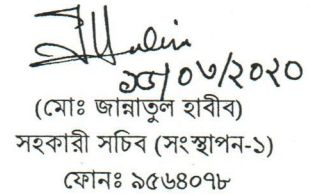 ০৩/২০২০
(মোঃ জান্নাতুল হাবীব)
সহকারী সচিব (সংস্থাপন-১)
ফোনঃ ৯৫৬৪০৭৮